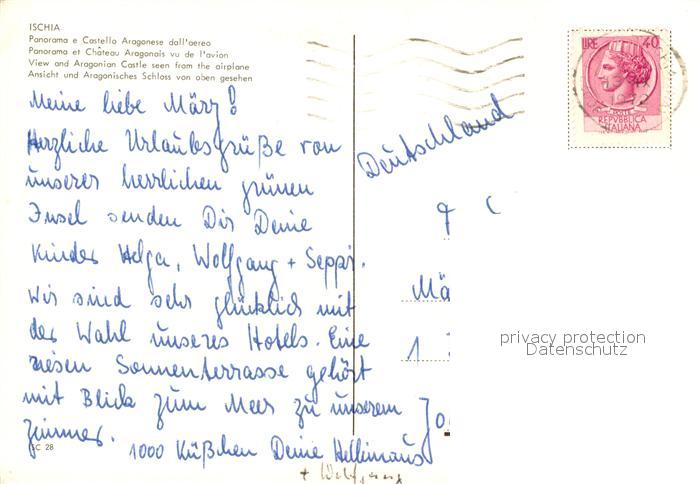 ISCHIA
Panorama e Castello Aragonese dall'aereo
Panorama et Château Aragonais vu de l'avion
View and Aragonian Castle seen from the airplane
Ansicht und Aragonisches Schloss von oben gesehen
LIRE 40
POSTE
REPVBBLICA
ITALIANA
Meine liebe März!
Herzliche Urlaubsgrüße von
unserer herrlichen grünen
Insel senden Dir Deine
Kinder Helga, Wolfgang + Seppi.
Wir sind sehr glücklich mit
der Wahl unseres Hotels. Eine
riesen Sonnenterrasse gehört
mit Blick zum Meer zu unserem
Zimmer.
1000 Küßchen Deine Hellimaus
+ Wolfgang
Deutschland
Mä
1
privacy protection
Datenschutz
SC 28